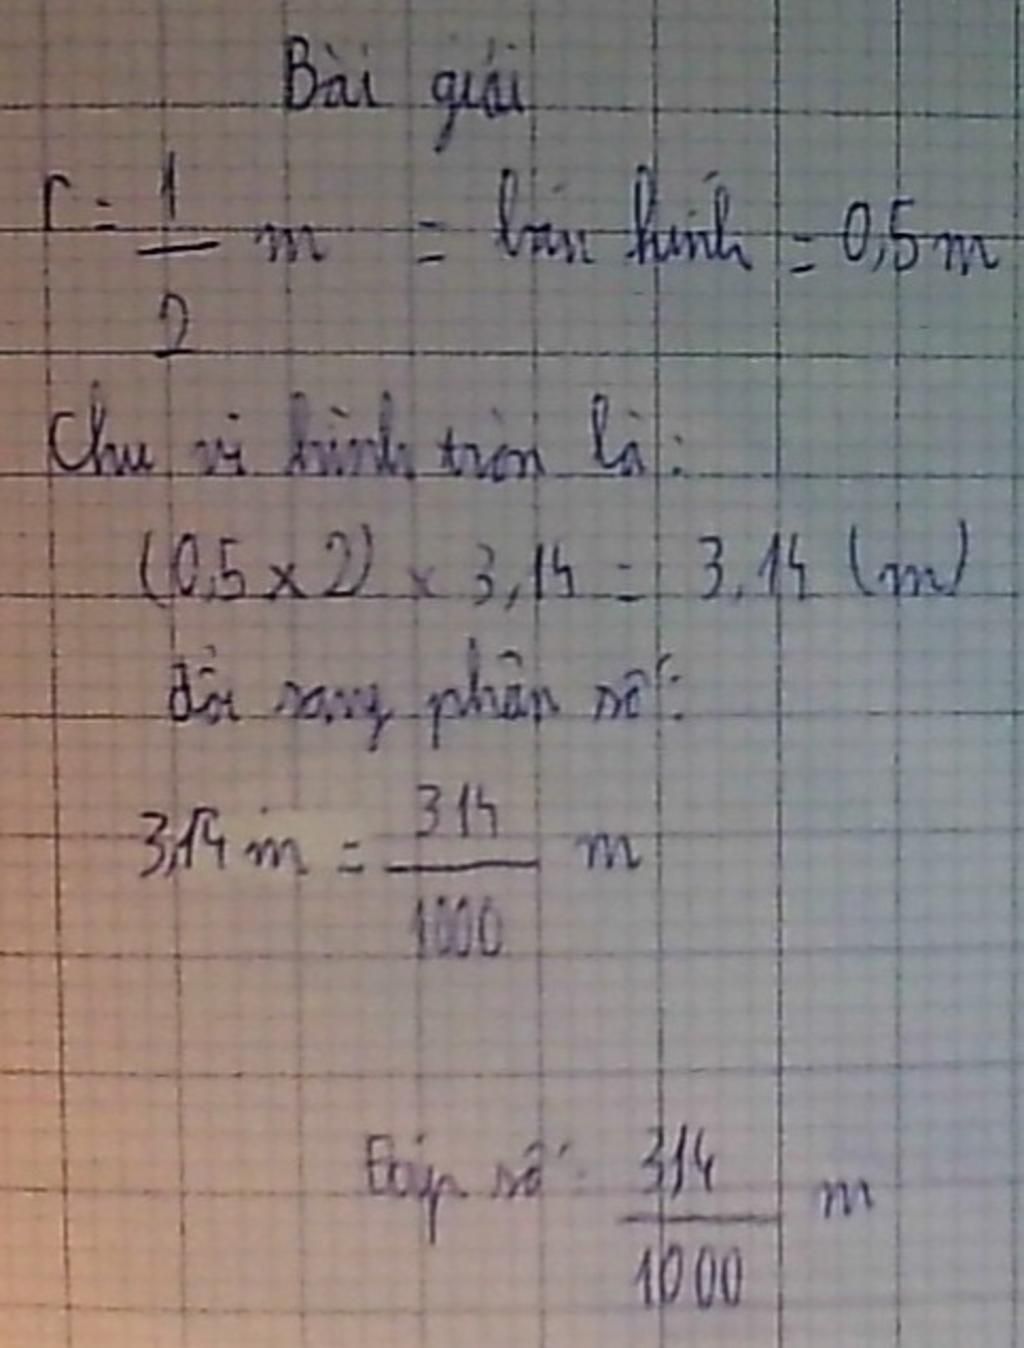 Bài giải
r = 1/2 m = bán kính = 0,5 m
Chu vi hình tròn là:
(0,5 x 2) x 3,14 = 3,14 (m)
đổi sang phân số:
3,14 m = 314/1000 m
Đáp số: 314/1000 m